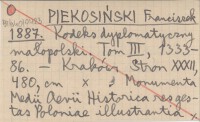 PIEKOSIŃSKI Franciszek
1887. Kodeks dyplomatyczny
małopolski. Tom III, 1333-
86. Kraków Stron XXXII,
480, cm × Monumenta
Medii Aevii Historica res ges-
tas Poloniae illustrantia